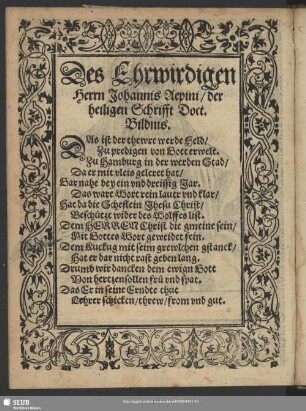 Des Ehrwirdigen
Herrn Johannis Aepini/ der
heiligen Schrifft Doct.
Bildnis.
DAs ist der thewre werde Held/
Zu predigen von Gott erwelt.
Zu Hamburg in der werden Stad/
Da er mit vleis geleret hat/
Gar nahe bey ein vnd dreissig Jar.
Das ware Wort rein lauter vnd klar/
Hat da die Scheflein Jhesu Christ/
Beschützt wider des Wolffes list.
Dem HERREN Christ die gmeine sein/
Mit Gottes Wort geweidet fein.
Dem Kuckug mit seim grewlichen gstanck/
Hat er dar nicht rast geben lang.
Drumb wir dancken dem ewign Gott
Von hertzen sollen frü vnd spat.
Das Er in seine Erndte thut
Lehrer schicken/ threw/ from vnd gut.
SLUB
Wir führen Wissen.